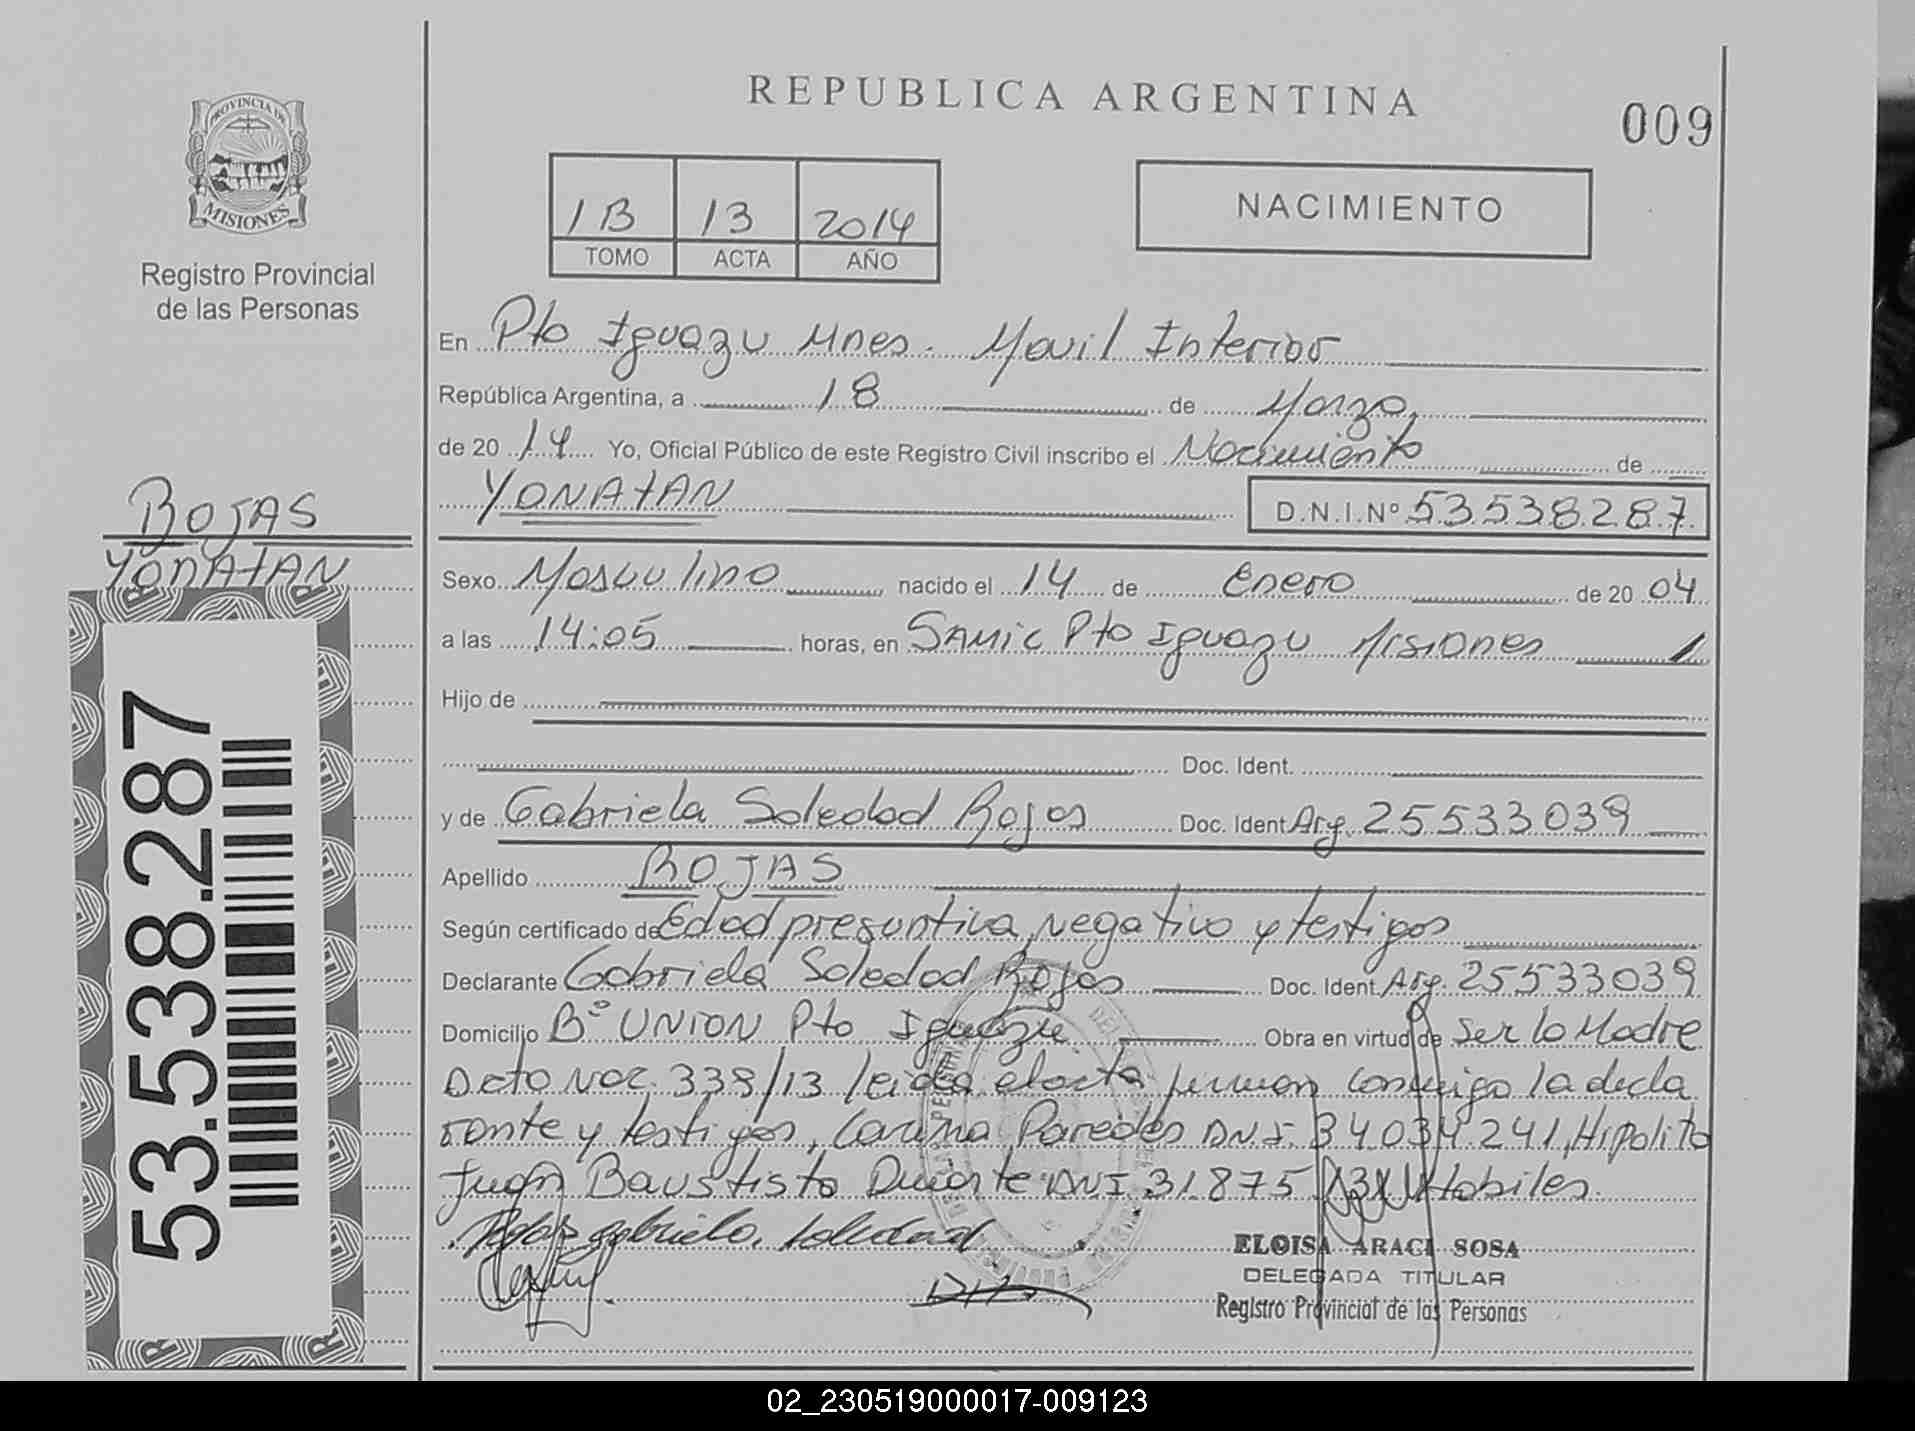 PROVINCIA DE
MISIONES
Registro Provincial
de las Personas
REPUBLICA ARGENTINA
009
1B 13 2014
TOMO ACTA AÑO
NACIMIENTO
En Pto Iguazu Mnes. Movil Interior
República Argentina, a 18 de Marzo
de 20 14 Yo, Oficial Público de este Registro Civil inscribo el Nacimiento de
YONATAN D.N.I.Nº 53538287
ROJAS
YONATAN
53.538.287
Sexo Masculino nacido el 14 de Enero de 20 04
a las 14:05 horas, en SAMIC Pto Iguazu Misiones
Hijo de
Doc. Ident.
y de Gabriela Soledad Rojas Doc. Ident Arg. 25533039
Apellido ROJAS
Según certificado de Edad presuntiva, negativo y testigos
Declarante Gabriela Soledad Rojas Doc. Ident. Arg. 25533039
Domicilio Bº UNION Pto Iguazu Obra en virtud de ser la Madre
Dcto Nac. 339/13 leida el acta firman conmigo la decla
rante y testigos, Carina Paredes DNI. 34034.241, Hipolito
Juan Baustista Duarte DNI 31.875 Habiles.
Rojas gabriela soledad
ELOISA ARACI SOSA
DELEGADA TITULAR
Registro Provincial de las Personas
02_230519000017-009123